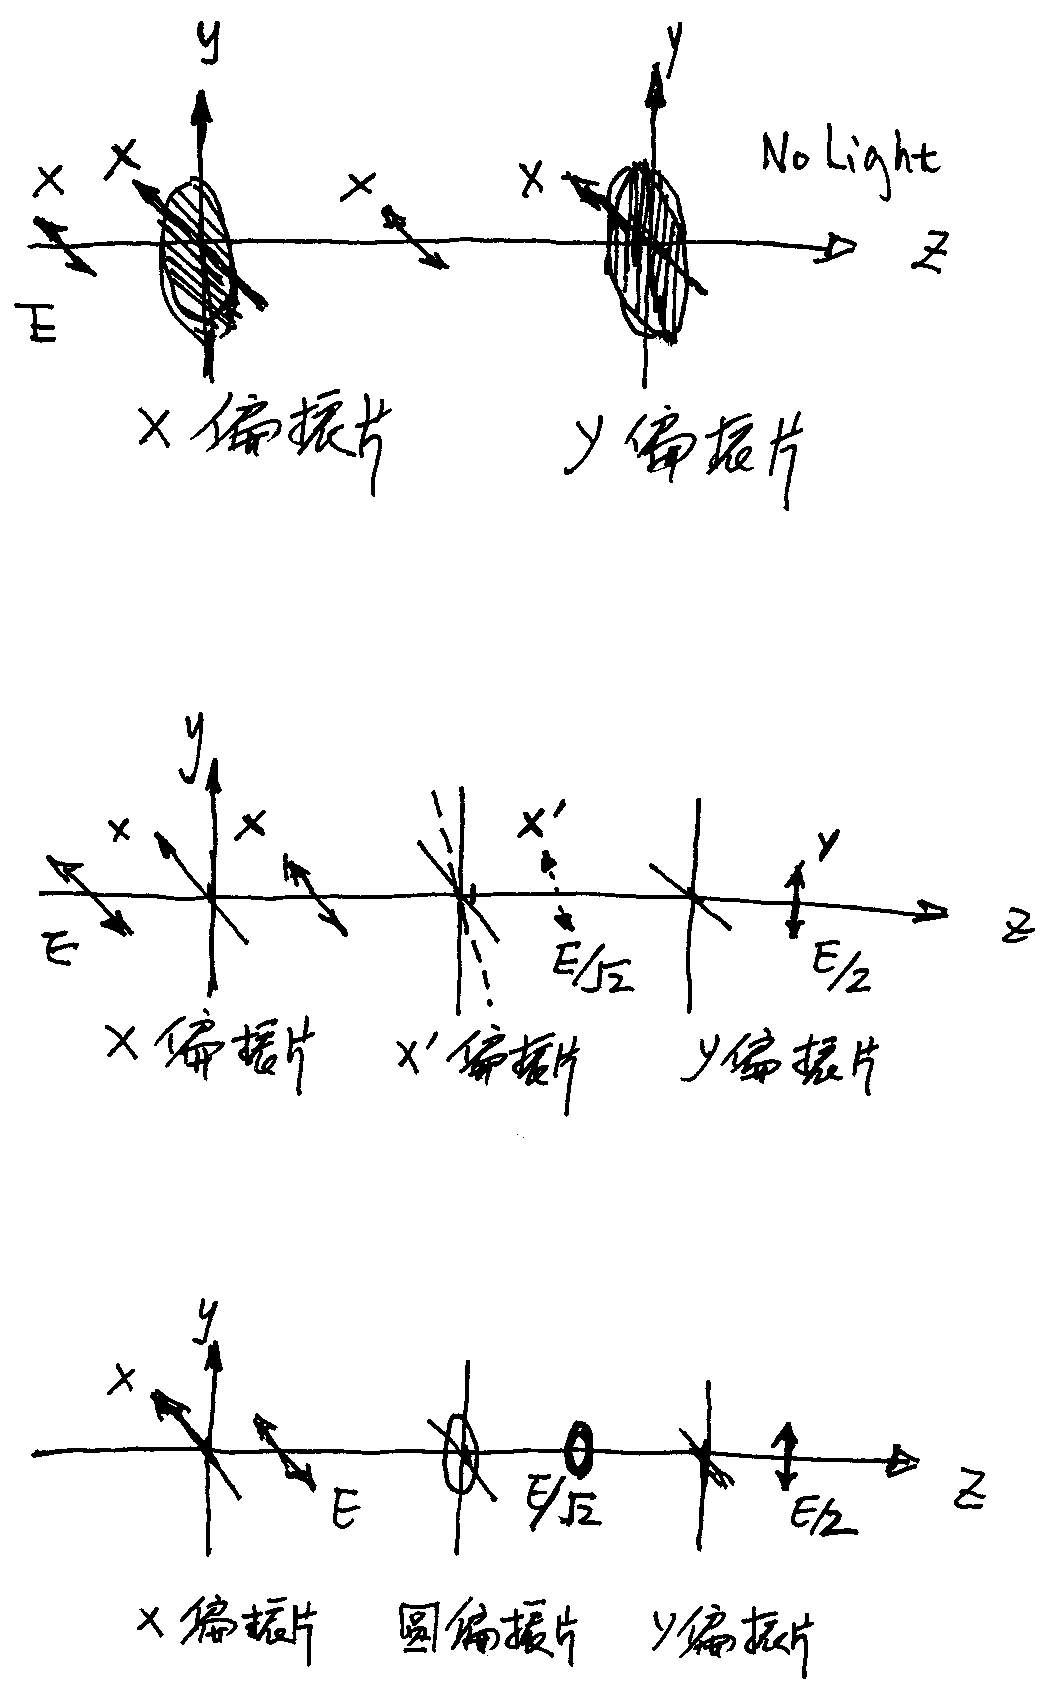 y y
X X X X No Light
E Z
X 偏振片 y 偏振片
y
x X X' y
E E/√2 E/2 Z
X 偏振片 X' 偏振片 y 偏振片
y
X
E E/√2 E/2 Z
X 偏振片 圓偏振片 y 偏振片